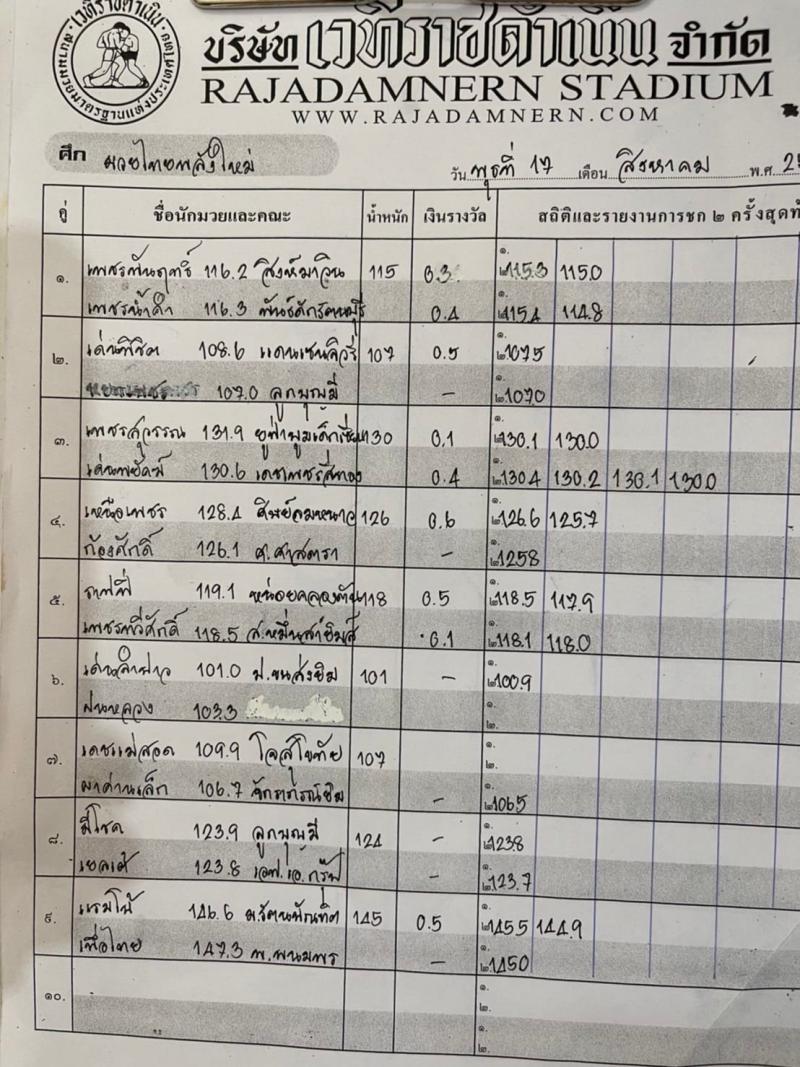 เวทีราชดำเนิน
สนามมวยมาตรฐานแห่งประเทศไทย
บริษัท เวทีราชดำเนิน จำกัด
RAJADAMNERN STADIUM
WWW.RAJADAMNERN.COM
ศึก มวยไทยพลังใหม่ วัน พุธที่ 17 เดือน สิงหาคม พ.ศ. 2
คู่ ชื่อนักมวยและคณะ น้ำหนัก เงินรางวัล สถิติและรายงานการชก ๒ ครั้งสุดท้
๑. เพชรพันฤทธิ์ 116.2 สิงห์มาวิน 115 0.3 ๑. ๒. 115.3 115.0
เพชรน้ำดำ 116.3 พันธ์ศักรัตนบุรี 0.4 ๑. ๒. 115.4 114.8
๒. เด่นพิชิต 108.6 แดนเซนลิเวอร์ 107 0.5 ๑. ๒. 107.5
107.0 ลูกบุญมี – ๑. ๒. 107.0
๓. เพชรสุวรรณ 131.9 130 0.1 ๑. ๒. 130.1 130.0
เด่นพยัคฆ์ 130.6 เดชเพชรสีทอง 0.4 ๑. ๒. 130.4 130.2 130.1 130.0
๔. เหนือเพชร 128.4 ศิษย์ลมหนาว 126 0.6 ๑. ๒. 126.6 125.7
ก้องศักดิ์ 126.1 ศ.ศาสตรา – ๑. ๒. 125.8
๕. 119.1 หน่อยคลองตัน 118 0.5 ๑. ๒. 118.5 117.9
เพชรทวีศักดิ์ 118.5 ส.หมื่นสายิมส์ 0.1 ๑. ๒. 118.1 118.0
๖. 101.0 ป.ขนส่งยิม 101 – ๑. ๒. 100.9
ฝนหลวง 103.3 ๑. ๒.
๗. เดชแม่สอด 109.9 โจสุโขทัย 107 ๑. ๒.
ผาด่านเล็ก 106.7 – ๑. ๒. 106.5
๘. มีโชค 123.9 ลูกบุญมี 124 – ๑. ๒. 123.8
123.8 เอฟ.เอ.กรุ๊ป – ๑. ๒. 123.7
๙. แรมโบ้ 146.6 ม.รัตนบัณฑิต 145 0.5 ๑. ๒. 145.5 144.9
เพื่อไทย 147.3 พ.พนมพร – ๑. ๒. 145.0
๑๐. ๑. ๒.
๑. ๒.